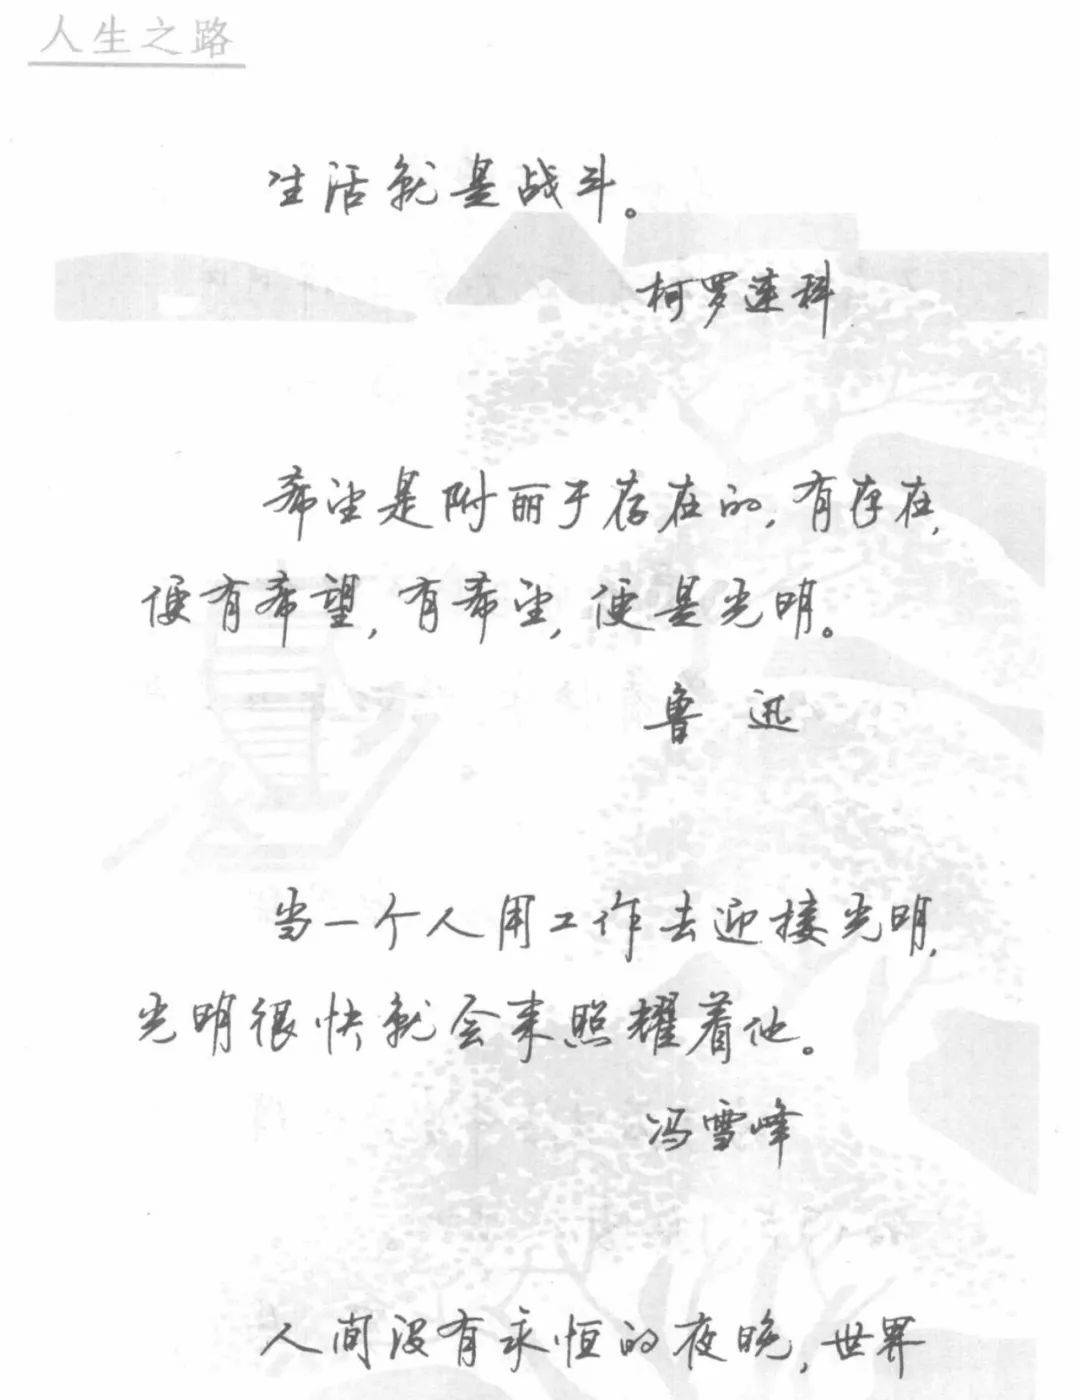 人生之路
生活就是战斗。
柯罗连科
希望是附丽于存在的,有存在,
便有希望,有希望,便是光明。
鲁迅
当一个人用工作去迎接光明,
光明很快就会来照耀着他。
冯雪峰
人间没有永恒的夜晚,世界